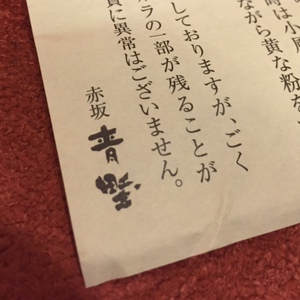 時は小
ながら黄な粉を
しておりますが、ごく
ラの一部が残ることが
に異常はございません。
赤坂
青野